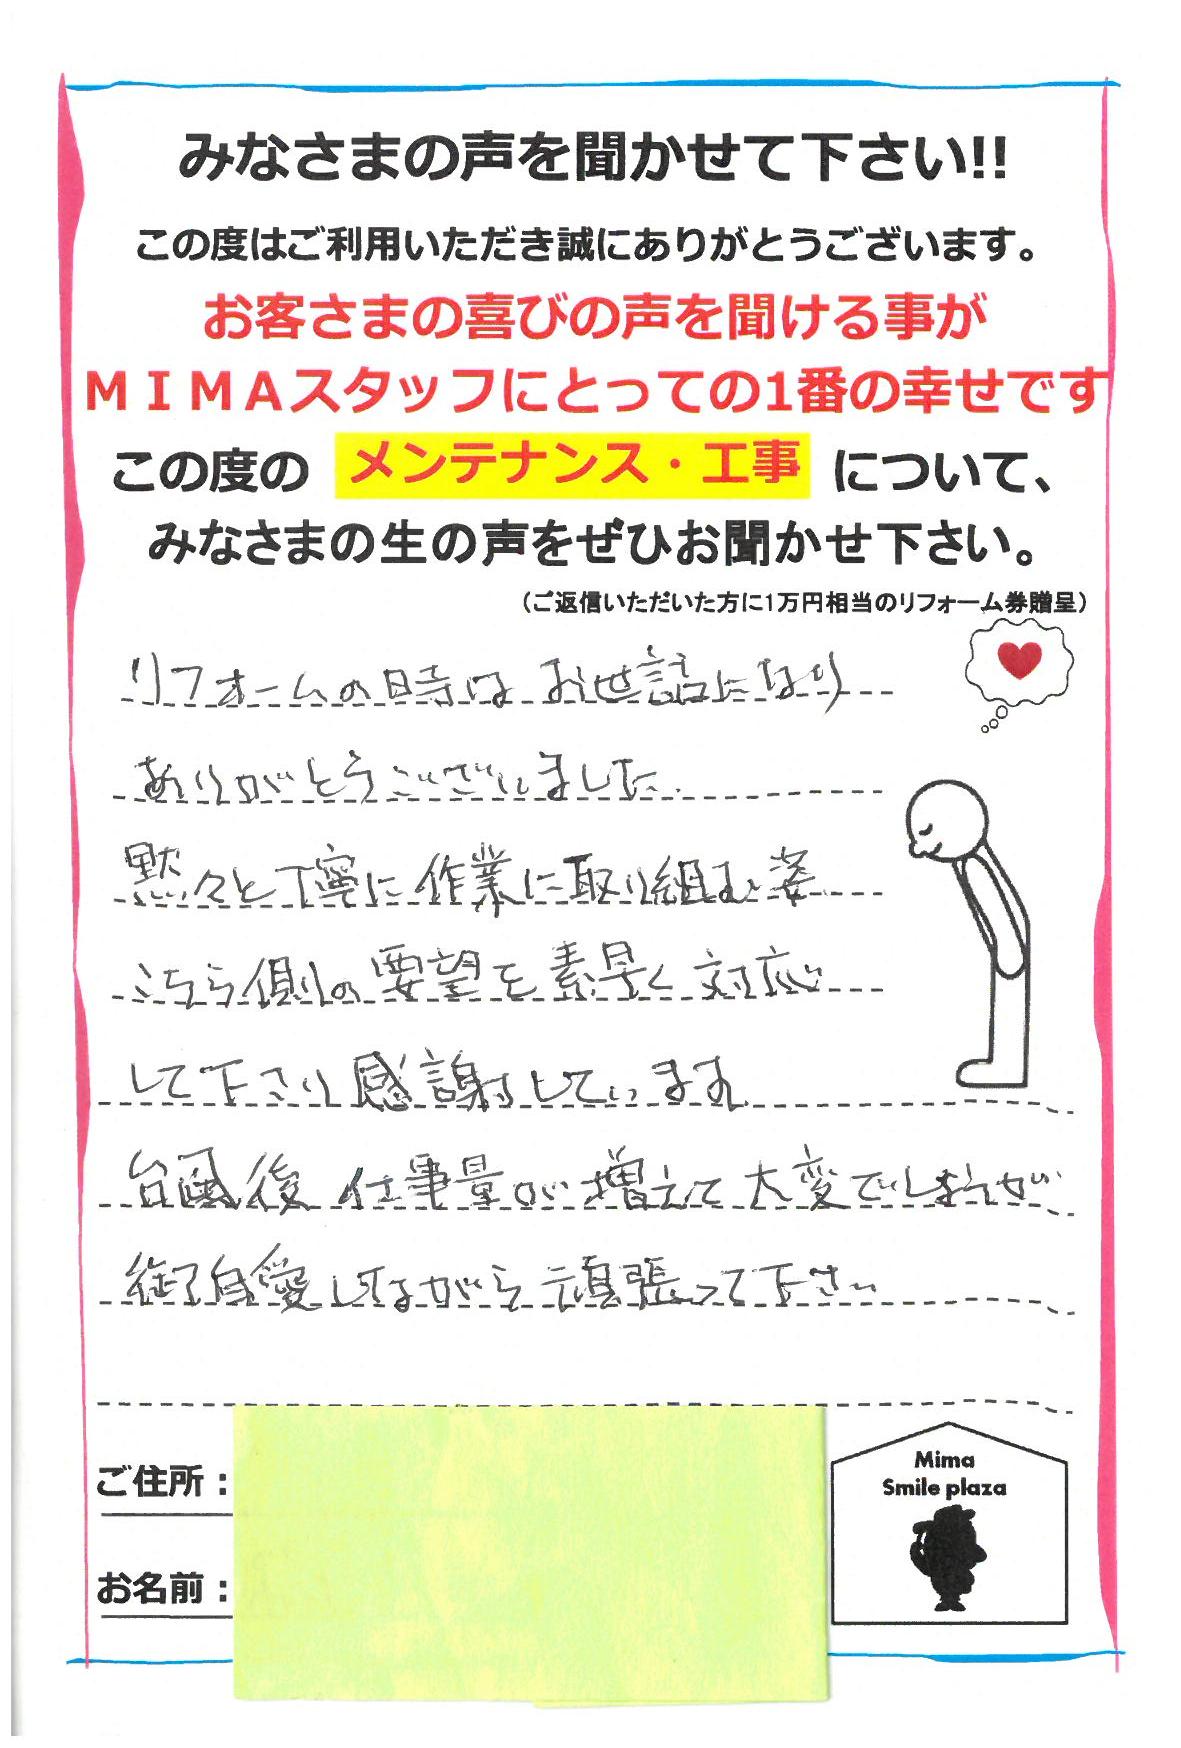 みなさまの声を聞かせて下さい!!
この度はご利用いただき誠にありがとうございます。
お客さまの喜びの声を聞ける事が
MIMAスタッフにとっての1番の幸せです
この度の メンテナンス・工事 について、
みなさまの生の声をぜひお聞かせ下さい。
(ご返信いただいた方に1万円相当のリフォーム券贈呈)
リフォームの時は お世話になり
ありがとうございました。
黙々と丁寧に作業に取り組む姿
こちら側の要望を素早く対応
して下さり感謝しています。
台風後 仕事量が増えて大変でしょうが
御自愛しながら頑張って下さい
ご住所：
お名前：
Mima
Smile plaza